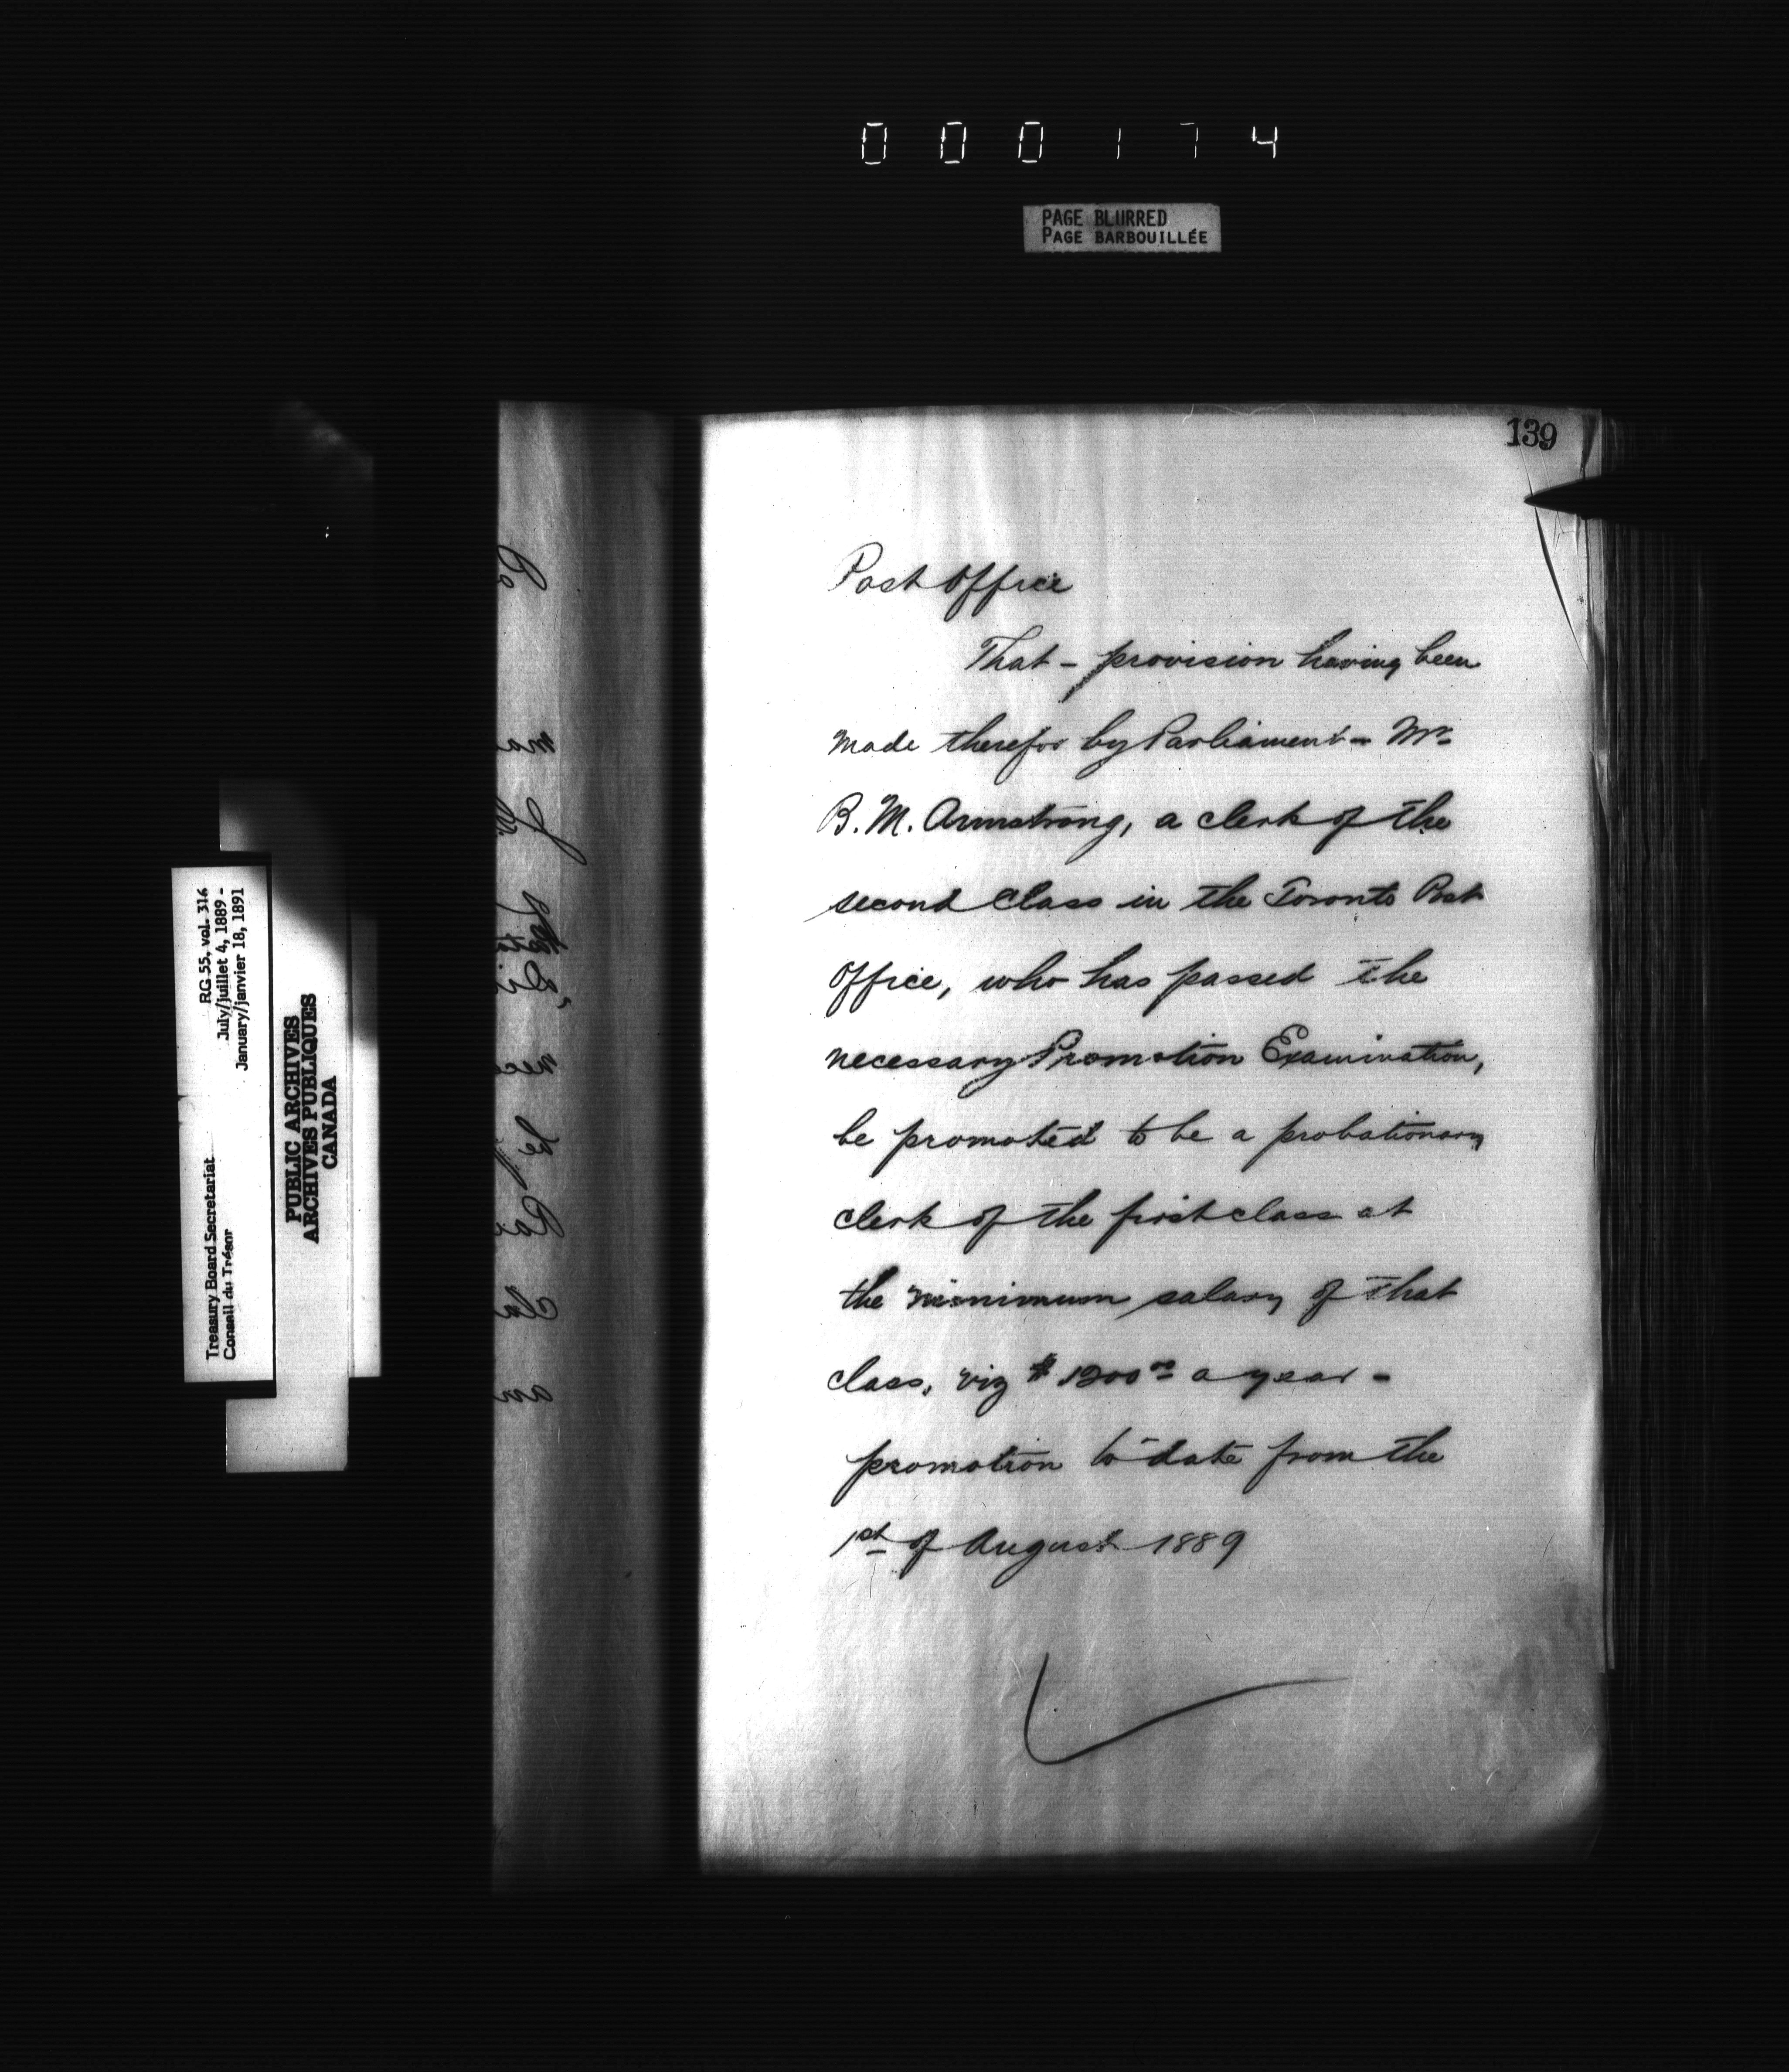 000174
PAGE BLURRED
PAGE BARBOUILLÉE
139
Post Office
That - provision having been
made therefor by Parliament - Mr
B. M. Armstrong, a clerk of the
second class in the Toronto Post
Office, who has passed the
necessary Promotion Examination,
be promoted to be a probationary
clerk of the first class at
the minimum salary of that
class, viz $1200.00 a year -
promotion to date from the
1st of August 1889
RG 55, vol. 314
July/juillet 4, 1889 -
January/janvier 18, 1891
Treasury Board Secretariat
Conseil du Trésor
PUBLIC ARCHIVES
ARCHIVES PUBLIQUES
CANADA